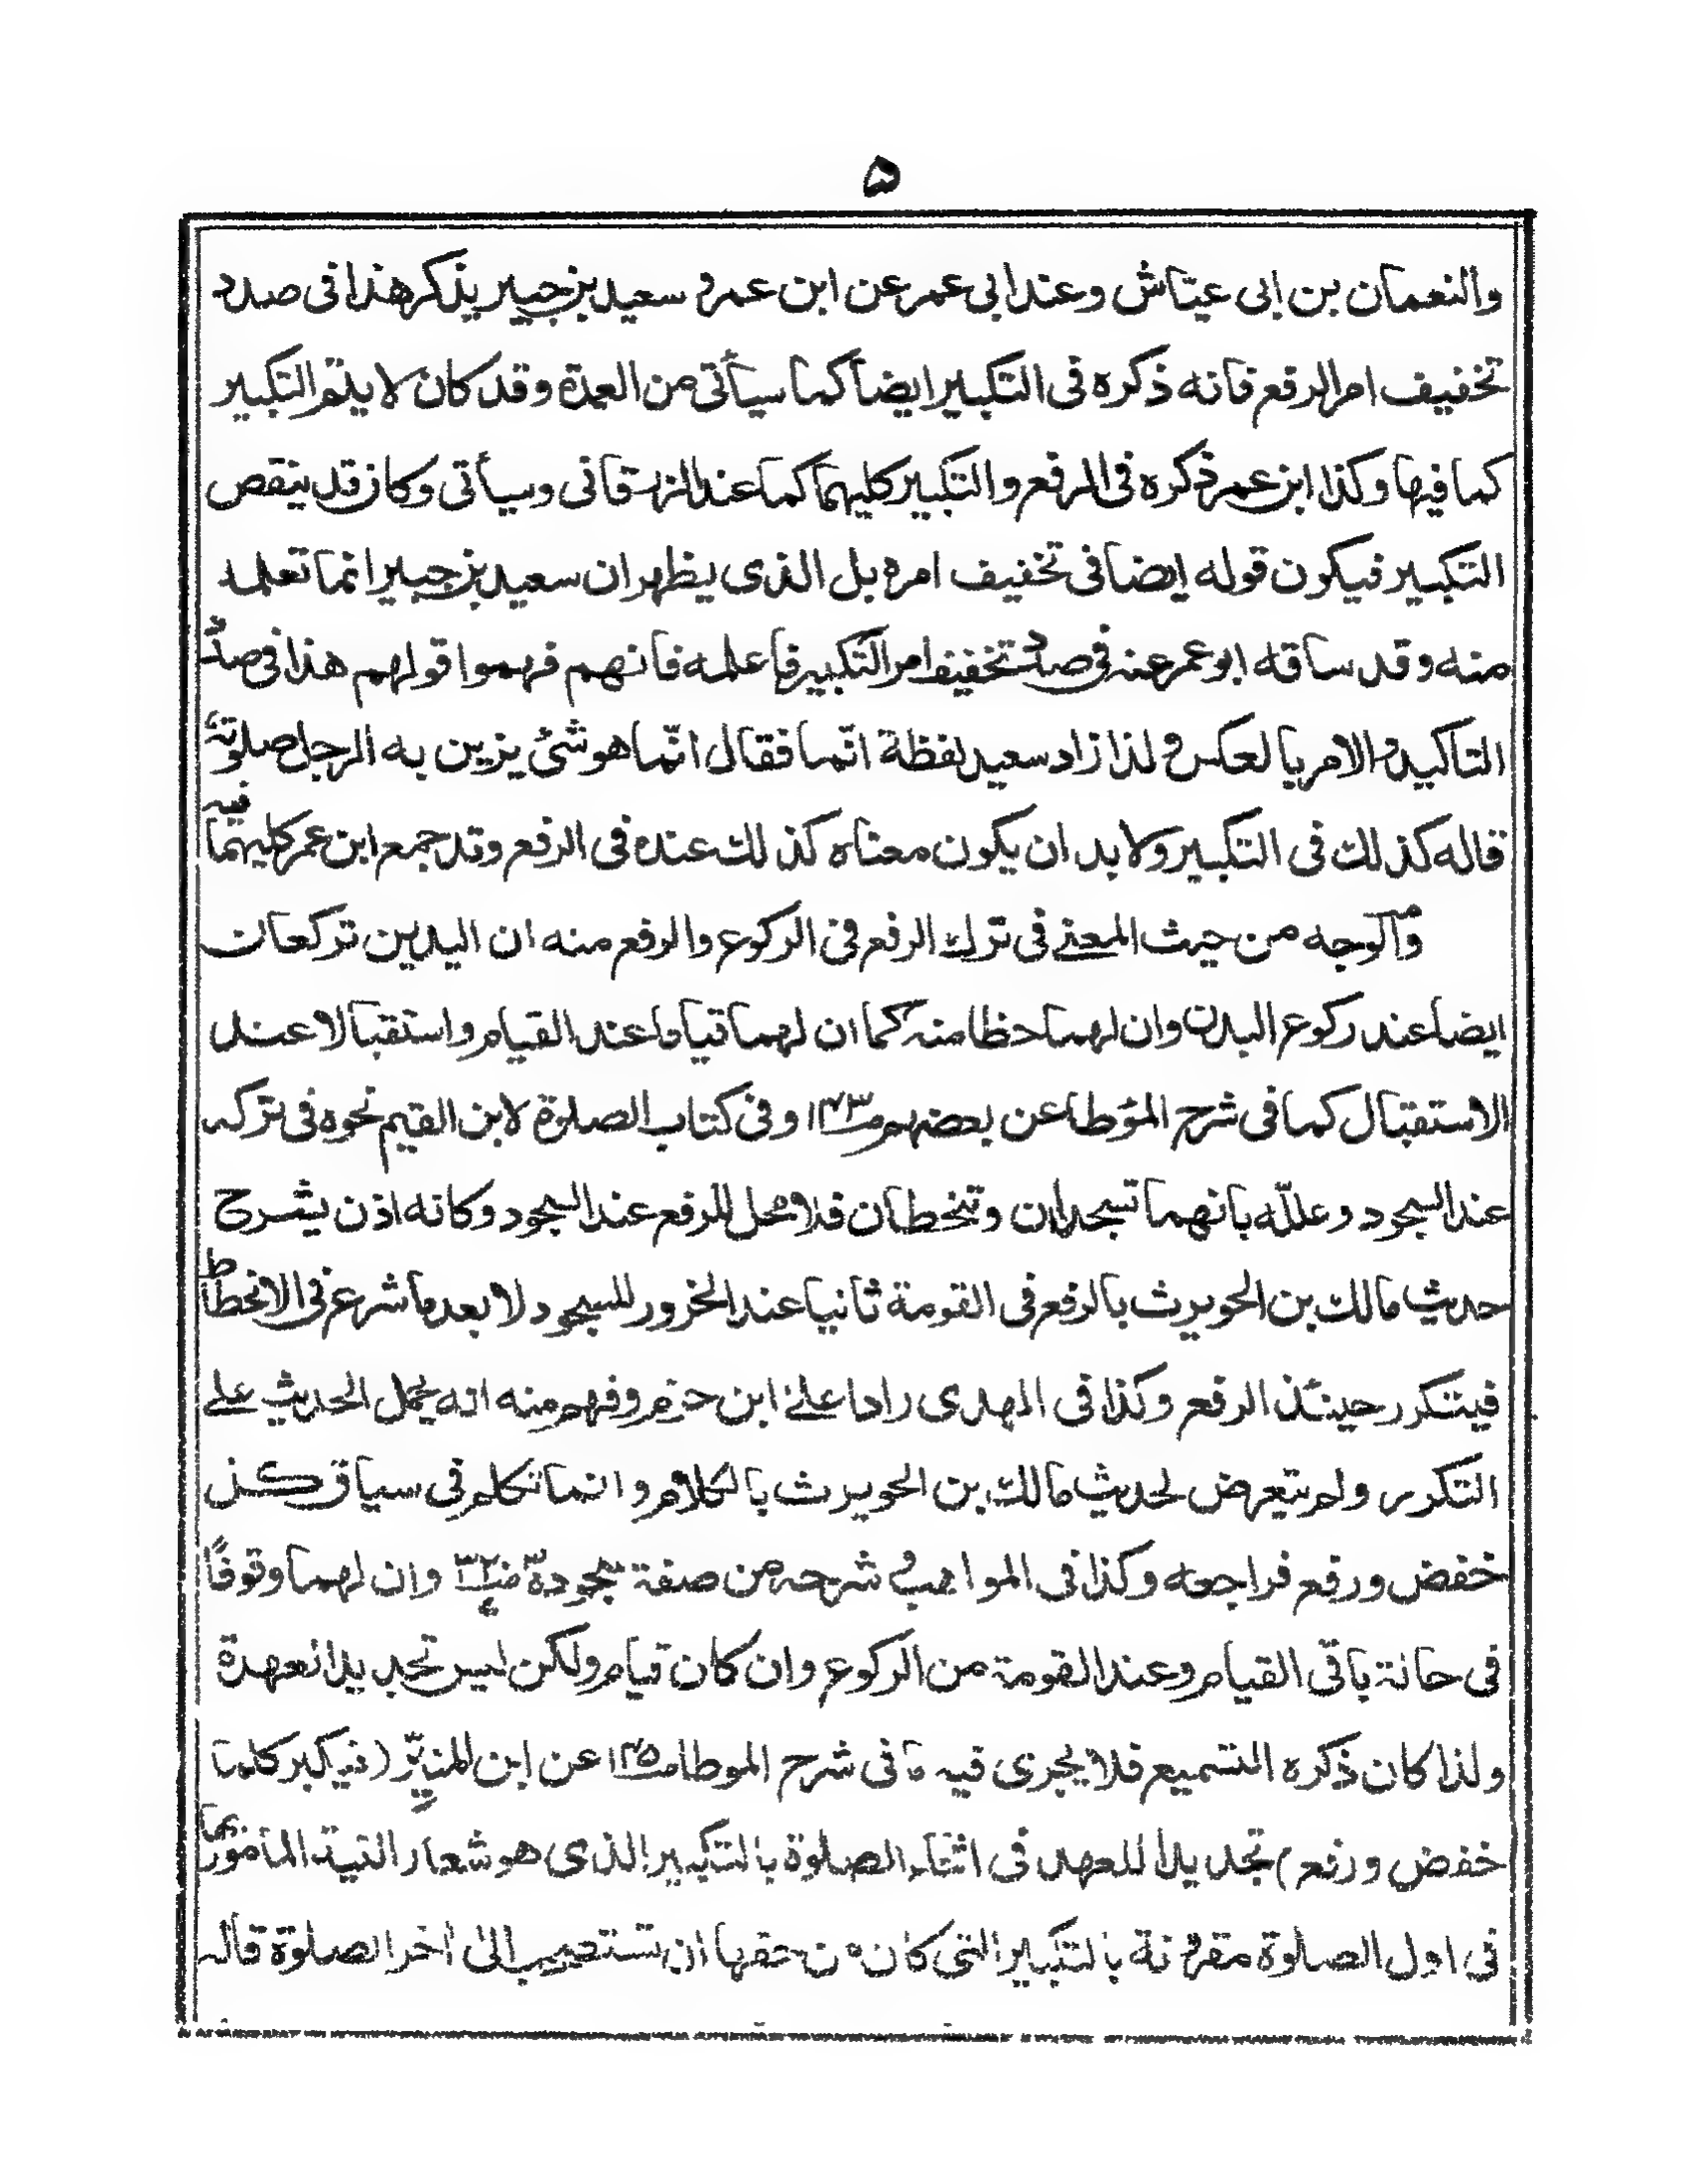 ۵
والنعمان بن ابى عيّاش وعند ابى عمر عن ابن عمر و سعيد بن جبير يذكر هذا فى صدد
تخفيف امر الرفع فانه ذكره فى التكبير ايضاً كما سيأتى من العمدة وقد كان لا يتم التكبير
كما فيها وكذا ابن عمر ذكره فى الرفع والتكبير كليهما كما عند الزرقانى وسيأتى وكان قد ينقص
التكبير فيكون قوله ايضا فى تخفيف امره بل الذى يظهر ان سعيد بن جبير انما تعلمه
منه وقد ساقه ابو عمر عنه فى صدد تخفيف امر التكبير فاعلمه فانهم فهموا قولهم هذا فى صدد
التاكيد والامر بالعكس و لذا زاد سعيد لفظة انّما فقال انّما هو شئ يزين به الرجل صلوته
قاله كذلك فى التكبير ولابد ان يكون معناه كذلك عنده فى الرفع وقد جمع ابن عمر كليهما فيه
والوجه من حيث المعنى فى ترك الرفع فى الركوع والرفع منه ان اليدين تركعان
ايضا عند ركوع البدن وان لهما حظا منه كما ان لهما قياما عند القيام واستقبالا عند
الاستقبال كما فى شرح المؤطا عن بعضهم ص١٤٣ وفى كتاب الصلوة لابن القيم نحوه فى تركه
عند السجود وعللّه بانهما تسجدان وتنحطان فلا محل للرفع عند السجود وكانه اذن يشرح
حديث مالك بن الحويرث بالرفع فى القومة ثانيا عند الخرور للسجود لا بعد ما شرع فى الانحطاط
فيتكرر حينئذ الرفع وكذا فى الهدى رادا على ابن حزم وفهم منه انه يحمل الحديث على
التكرر ولم يتعرض لحديث مالك بن الحويرث بالكلام وانما تكلم فى سياق كل
خفض ورفع فراجعه وكذا فى المواهب و شرحه من صفة سجوده وان لهما وقوفًا
فى حالة باقى القيام وعند القومة من الركوع وان كان قيام ولكن ليس تجديدا لعهدة
ولذا كان ذكره التسميع فلا يجرى فيه ما فى شرح الموطا ص١٤٥ عن ابن المنيّر (فى يكبر كلما
خفض ورفع) تجديدا للعهد فى اثناء الصلوة بالتكبير الذى هو شعار النية المأمور بها
فى اول الصلوة مقرونة بالتكبير التى كان من حقها ان تستصحب الى اخر الصلوة قاله